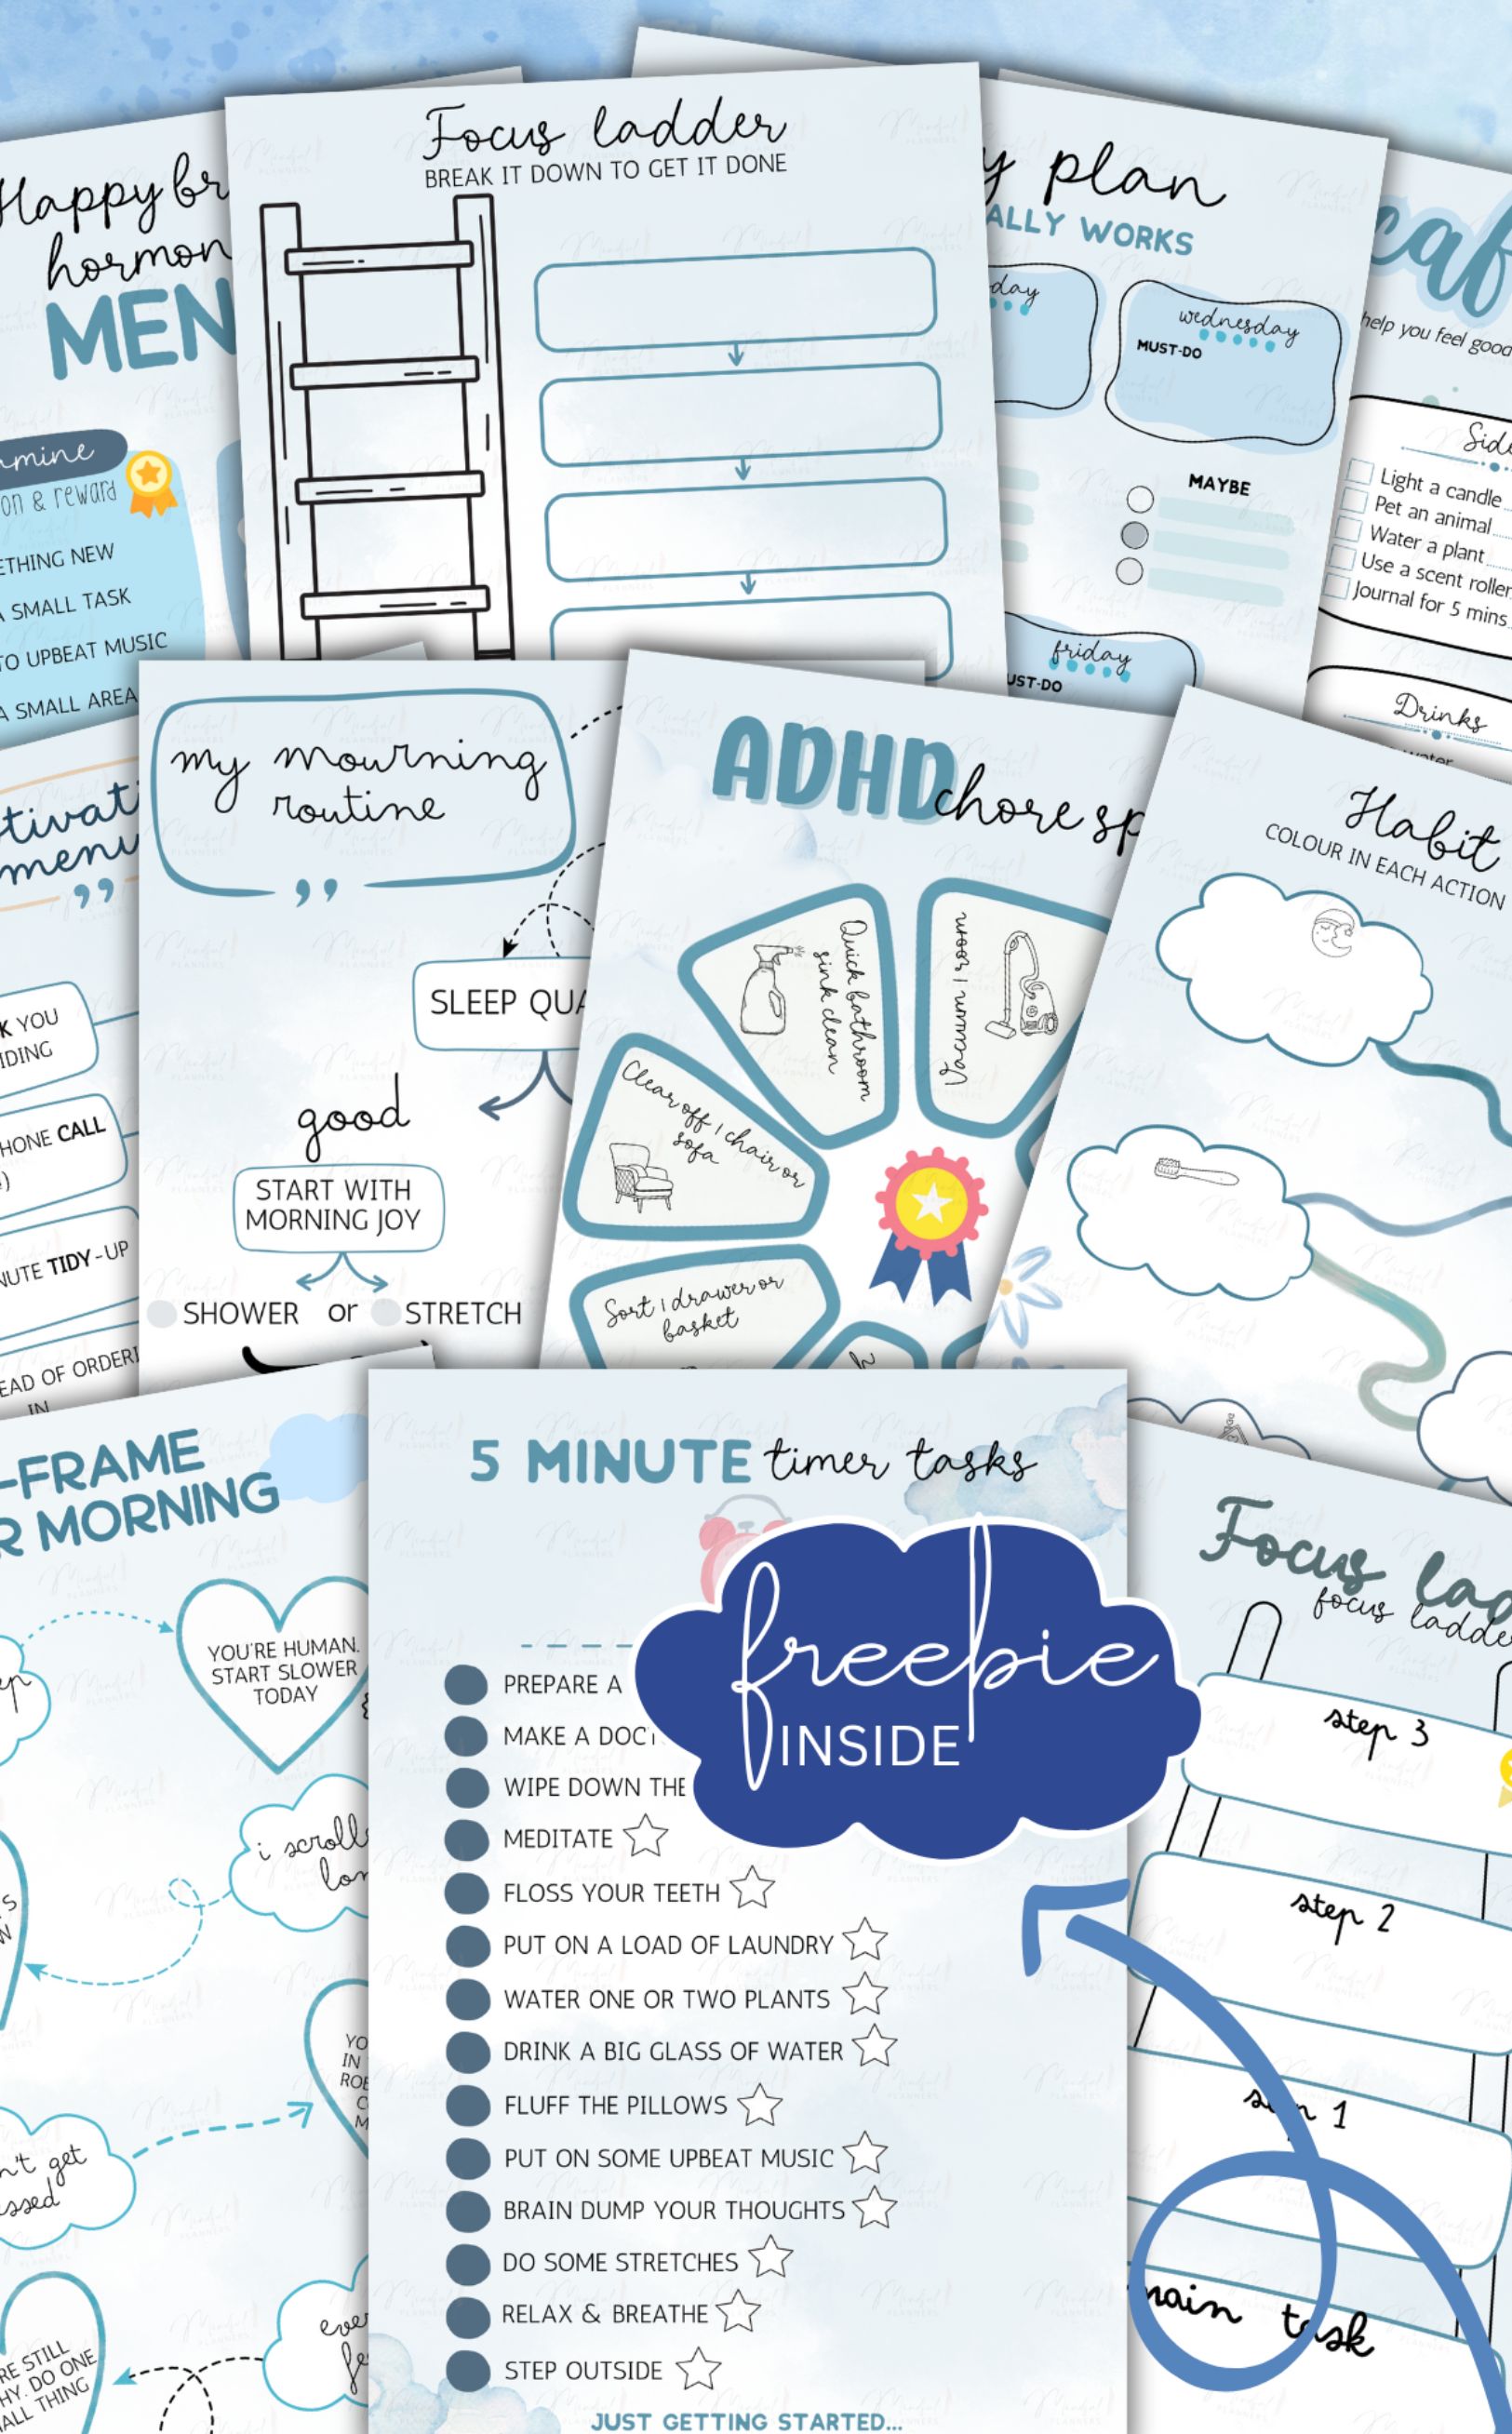 Happy
hormon
MEN
on & reward
ETHING NEW
A SMALL TASK
TO UPBEAT MUSIC
A SMALL AREA
Focus ladder
BREAK IT DOWN TO GET IT DONE
y plan
ALLY WORKS
day
wednesday
MUST-DO
MAYBE
friday
UST-DO
help you feel good
Light a candle
Pet an animal
Water a plant
Use a scent roller
Journal for 5 mins
Drinks
menu
K YOU
IDING
HONE CALL
NUTE TIDY-UP
EAD OF ORDERI
IN
my mourning
routine
SLEEP QUA
good
START WITH
MORNING JOY
SHOWER or STRETCH
ADHD chore sp
Quick bathroom
sink clean
Vacuum 1 room
Clear off 1 chair or
sofa
Sort 1 drawer or
basket
Habit
COLOUR IN EACH ACTION
-FRAME
R MORNING
YOU'RE HUMAN.
START SLOWER
TODAY
i scroll
n't get
essed
RE STILL
HY. DO ONE
ALL THING
5 MINUTE timer tasks
freebie
INSIDE
PREPARE A
MAKE A DOC
WIPE DOWN THE
MEDITATE
FLOSS YOUR TEETH
PUT ON A LOAD OF LAUNDRY
WATER ONE OR TWO PLANTS
DRINK A BIG GLASS OF WATER
FLUFF THE PILLOWS
PUT ON SOME UPBEAT MUSIC
BRAIN DUMP YOUR THOUGHTS
DO SOME STRETCHES
RELAX & BREATHE
STEP OUTSIDE
JUST GETTING STARTED...
Focus lad
focus ladde
step 3
step 2
1
main task